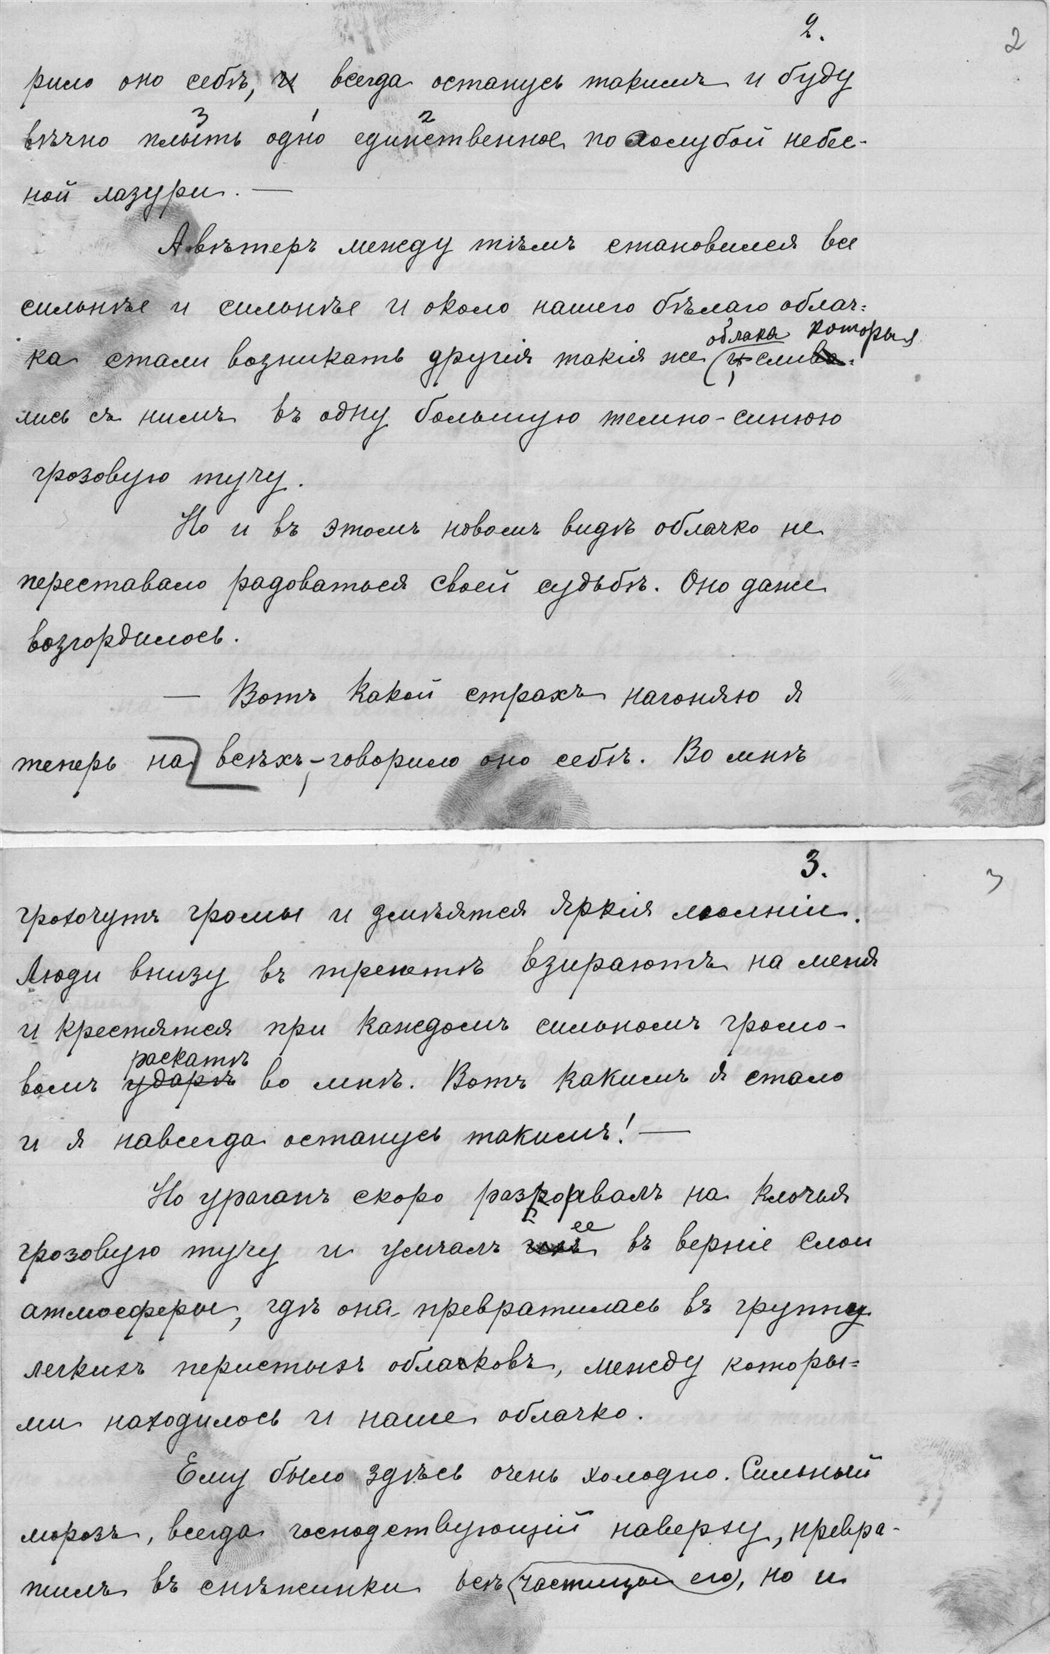 2. 2
рило оно себѣ, и всегда останусь такимъ и буду
3 1 2
вѣчно плыть одно единственное по голубой небес-
ной лазури. —
А вѣтеръ между тѣмъ становился все
сильнѣе и сильнѣе и около нашего бѣлаго облач-
облака которыя
ка стали возникать другія такія же (и слива-
лись съ нимъ въ одну большую темно-синюю
грозовую тучу.
Но и въ этомъ новомъ видѣ облачко не
переставало радоваться своей судьбѣ. Оно даже
возгордилось.
— Вотъ какой страхъ нагоняю я
теперь на всѣхъ, – говорило оно себѣ. Во мнѣ
3. 3
грохочутъ громы и змѣятся яркія молніи.
Люди внизу въ трепетѣ взираютъ на меня
и крестятся при каждомъ сильномъ громо-
раскатѣ
вомъ ударѣ во мнѣ. Вотъ какимъ я стало
и я навсегда останусь такимъ! —
Но ураганъ скоро разорвалъ на клочья
ее
грозовую тучу и умчалъ въ верніе слои
атмосферы, гдѣ она превратилась въ группу
легкихъ перистыхъ облачковъ, между которы-
ми находилось и наше облачко.
Ему было здѣсь очень холодно. Сильный
морозъ, всегда господствующій наверху, превра-
тилъ въ снѣжинки всѣ (частицы его), но и